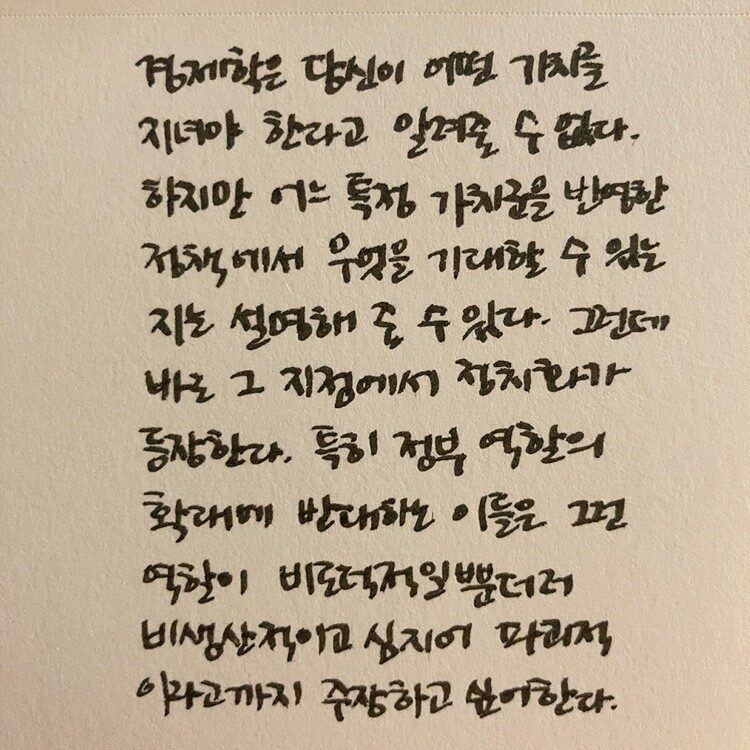 경제학은 당신이 어떤 가치를
지녀야 한다고 알려줄 수 없다.
하지만 어느 특정 가치관을 반영한
정책에서 무엇을 기대할 수 있는
지는 설명해 줄 수 있다. 그런데
바로 그 지점에서 정치화가
등장한다. 특히 정부 역할의
확대에 반대하는 이들은 그런
역할이 비도덕적일뿐더러
비생산적이고 심지어 파괴적
이라고까지 주장하고 싶어한다.